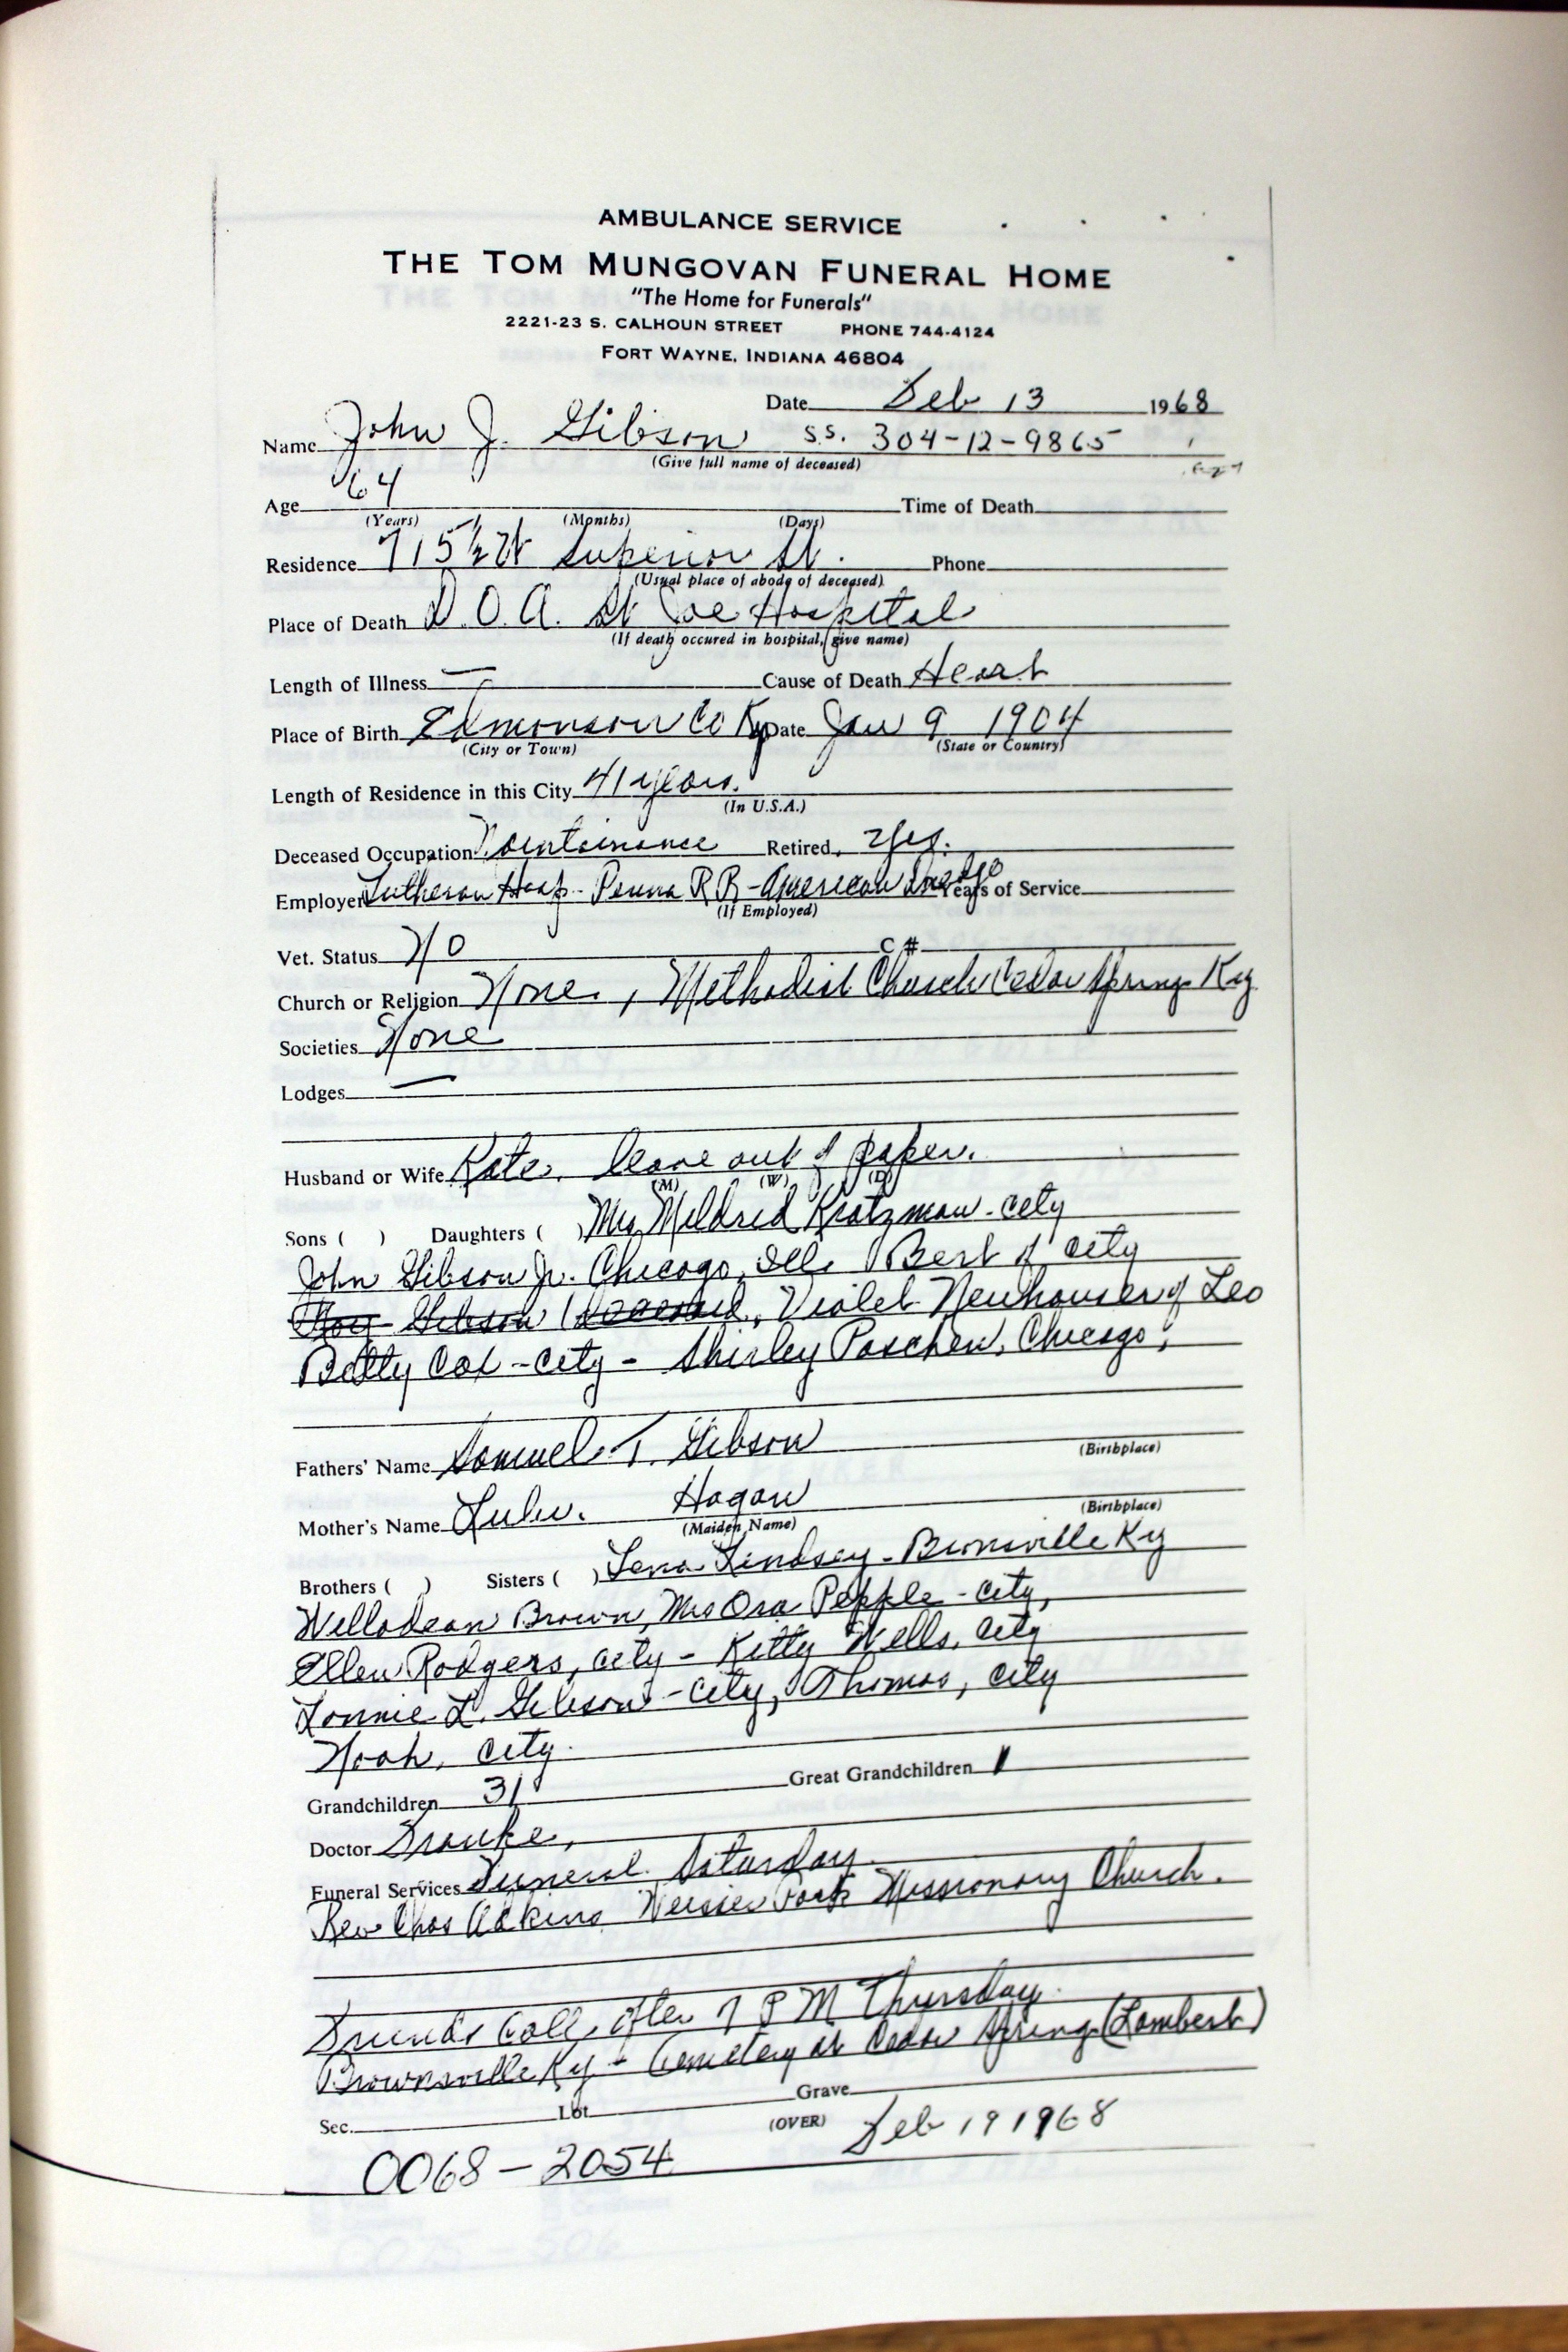 AMBULANCE SERVICE
THE TOM MUNGOVAN FUNERAL HOME
"The Home for Funerals"
2221-23 S. CALHOUN STREET PHONE 744-4124
FORT WAYNE, INDIANA 46804
Date Feb 13 1968
Name John J. Gibson S.S. 304-12-9865
(Give full name of deceased)
Age 64 Time of Death
(Years) (Months) (Days)
Residence 715 1/2 W Superior St. Phone
(Usual place of abode of deceased)
Place of Death D.O.A. St Joe Hospital
(If death occured in hospital, give name)
Length of Illness — Cause of Death Heart
Place of Birth Edmonson Co Ky Date Jan 9 1904
(City or Town) (State or Country)
Length of Residence in this City 41 years.
(In U.S.A.)
Deceased Occupation Maintainance Retired Yes.
Employer Lutheran Hosp - Penna R R - American Years of Service
(If Employed)
Vet. Status No C #
Church or Religion None, Methodist Church Cedar Springs Ky
Societies None
Lodges —
Husband or Wife Kate. leave out of paper.
(M) (W) (D)
Sons ( ) Daughters ( ) Mrs Mildred Kratzman - city
John Gibson Jr. Chicago, Ill. Bert of city
Roy Gibson (Deceased, Violet Neuhouser of Leo
Betty Cox - city - Shirley Paschen, Chicago,
Fathers' Name Samuel T. Gibson (Birthplace)
Mother's Name Lulu. Hogan (Birthplace)
(Maiden Name)
Brothers ( ) Sisters ( ) Lena Lindsey - Brownsville Ky
Willodean Brown, Mrs Ora Pepple - city,
Ellen Rodgers, city - Kitty Wells, city
Lonnie L. Gibson - city, Thomas, city
Noah, city.
Grandchildren 31 Great Grandchildren 1
Doctor Franke,
Funeral Services Funeral Saturday
Rev Chas Adkins Weisser Park Missionary Church.
Friends Call after 7 P M Thursday
Brownsville Ky - Cemetery at Cedar Springs (Lambert)
Sec. Lot Grave
(OVER) Feb 19 1968
0068-2054